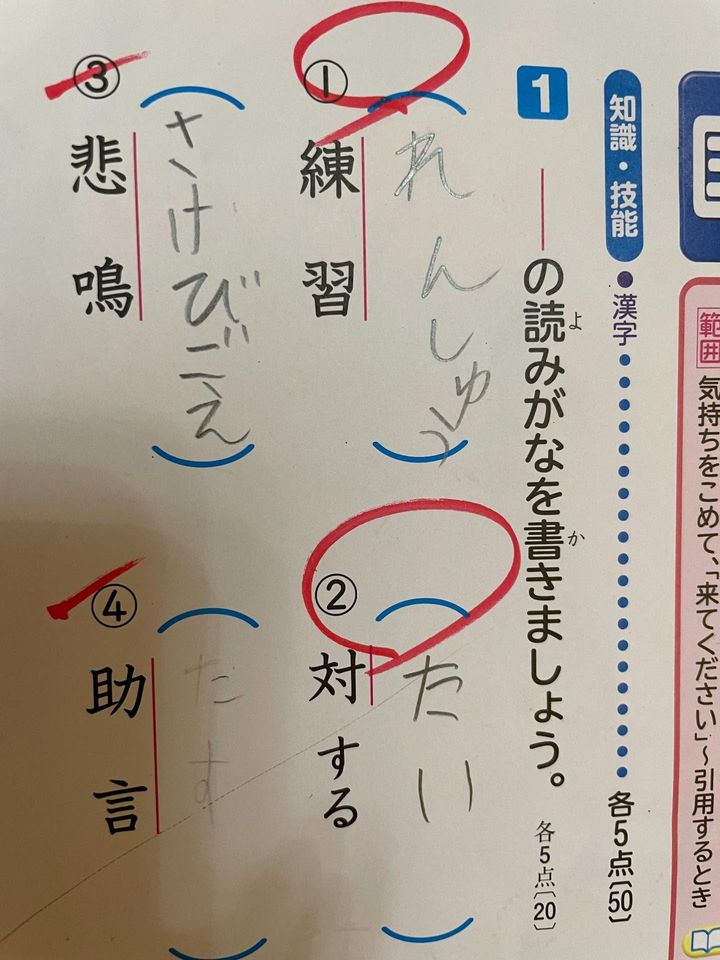 範囲 気持ちをこめて、「来てください」～引用するとき
知識・技能 ●漢字 各5点〔50〕
1 ――の読みがなを書きましょう。 各5点〔20〕
よ
か
① 練習
れんしゅう
② 対する
たい
③ 悲鳴
さけびごえ
④ 助言
たす